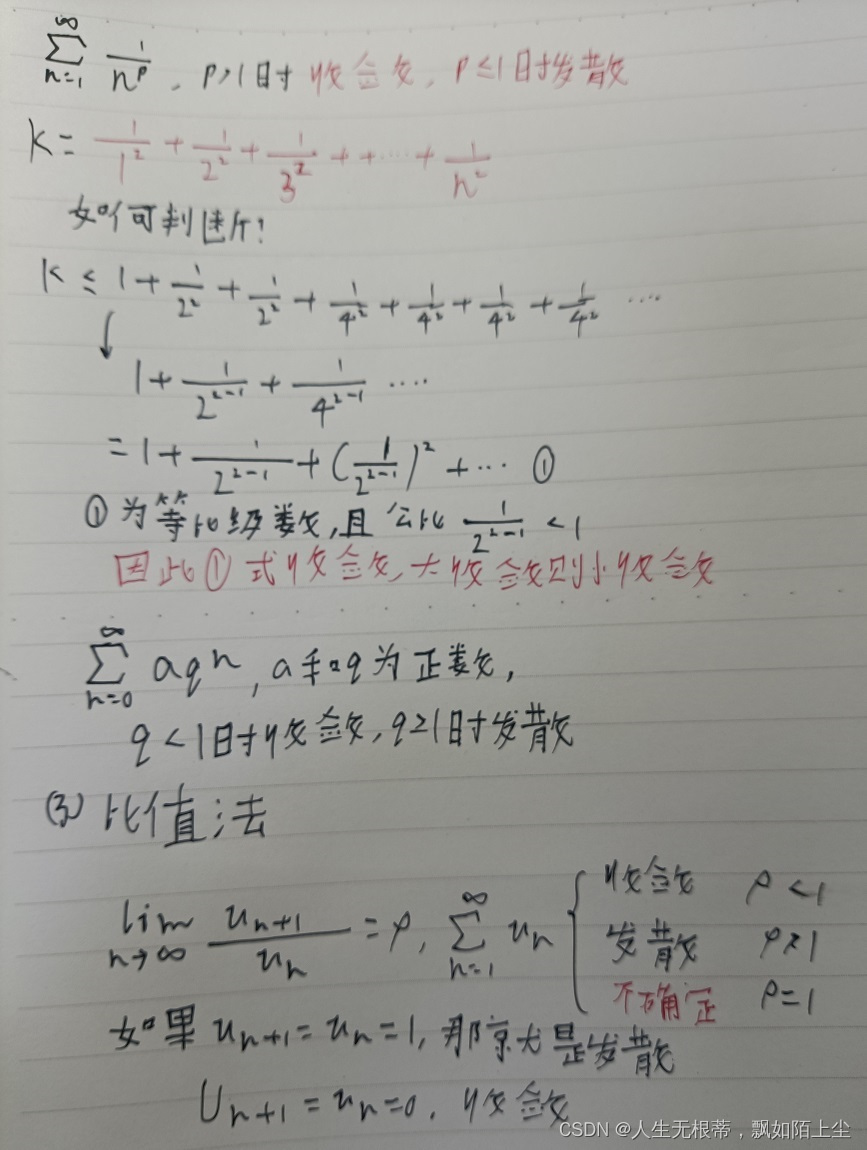 ∑_{n=1}^{∞} 1/n^p , p>1时 收敛, p≤1时发散
K = 1/1² + 1/2² + 1/3² + + ···· + 1/n²
如何判断?
K ≤ 1 + 1/2² + 1/2² + 1/4² + 1/4² + 1/4² + 1/4² ····
↓
1 + 1/2^{2-1} + 1/4^{2-1} ····
= 1 + 1/2^{2-1} + (1/2^{2-1})² + ··· ①
①为等比级数,且公比 1/2^{2-1} < 1
因此①式收敛,大收敛则小收敛
∑_{n=0}^{∞} aqⁿ , a和q为正数,
q<1时收敛,q≥1时发散
(3) 比值法
lim_{n→∞} u_{n+1}/u_n = ρ, ∑_{n=1}^{∞} u_n { 收敛 ρ<1
发散 ρ>1
不确定 ρ=1
如果 u_{n+1}=u_n=1, 那就是发散
U_{n+1}=u_n=0. 收敛
CSDN @人生无根蒂，飘如陌上尘